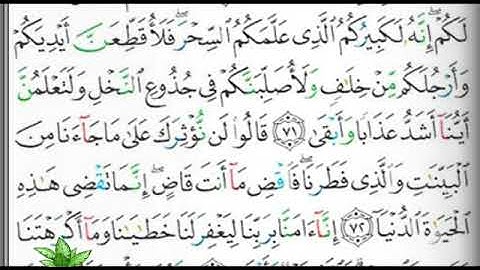 لَكُمْ ۖ إِنَّهُۥ لَكَبِيرُكُمُ ٱلَّذِى عَلَّمَكُمُ ٱلسِّحْرَ ۖ فَلَأُقَطِّعَنَّ أَيْدِيَكُمْ
وَأَرْجُلَكُم مِّنْ خِلَٰفٍ وَلَأُصَلِّبَنَّكُمْ فِى جُذُوعِ ٱلنَّخْلِ وَلَتَعْلَمُنَّ
أَيُّنَآ أَشَدُّ عَذَابًا وَأَبْقَىٰ ﴿٧١﴾ قَالُوا۟ لَن نُّؤْثِرَكَ عَلَىٰ مَا جَآءَنَا مِنَ
ٱلْبَيِّنَٰتِ وَٱلَّذِى فَطَرَنَا ۖ فَٱقْضِ مَآ أَنتَ قَاضٍ ۖ إِنَّمَا تَقْضِى هَٰذِهِ
ٱلْحَيَوٰةَ ٱلدُّنْيَآ ﴿٧٢﴾ إِنَّآ ءَامَنَّا بِرَبِّنَا لِيَغْفِرَ لَنَا خَطَٰيَٰنَا وَمَآ أَكْرَهْتَنَا